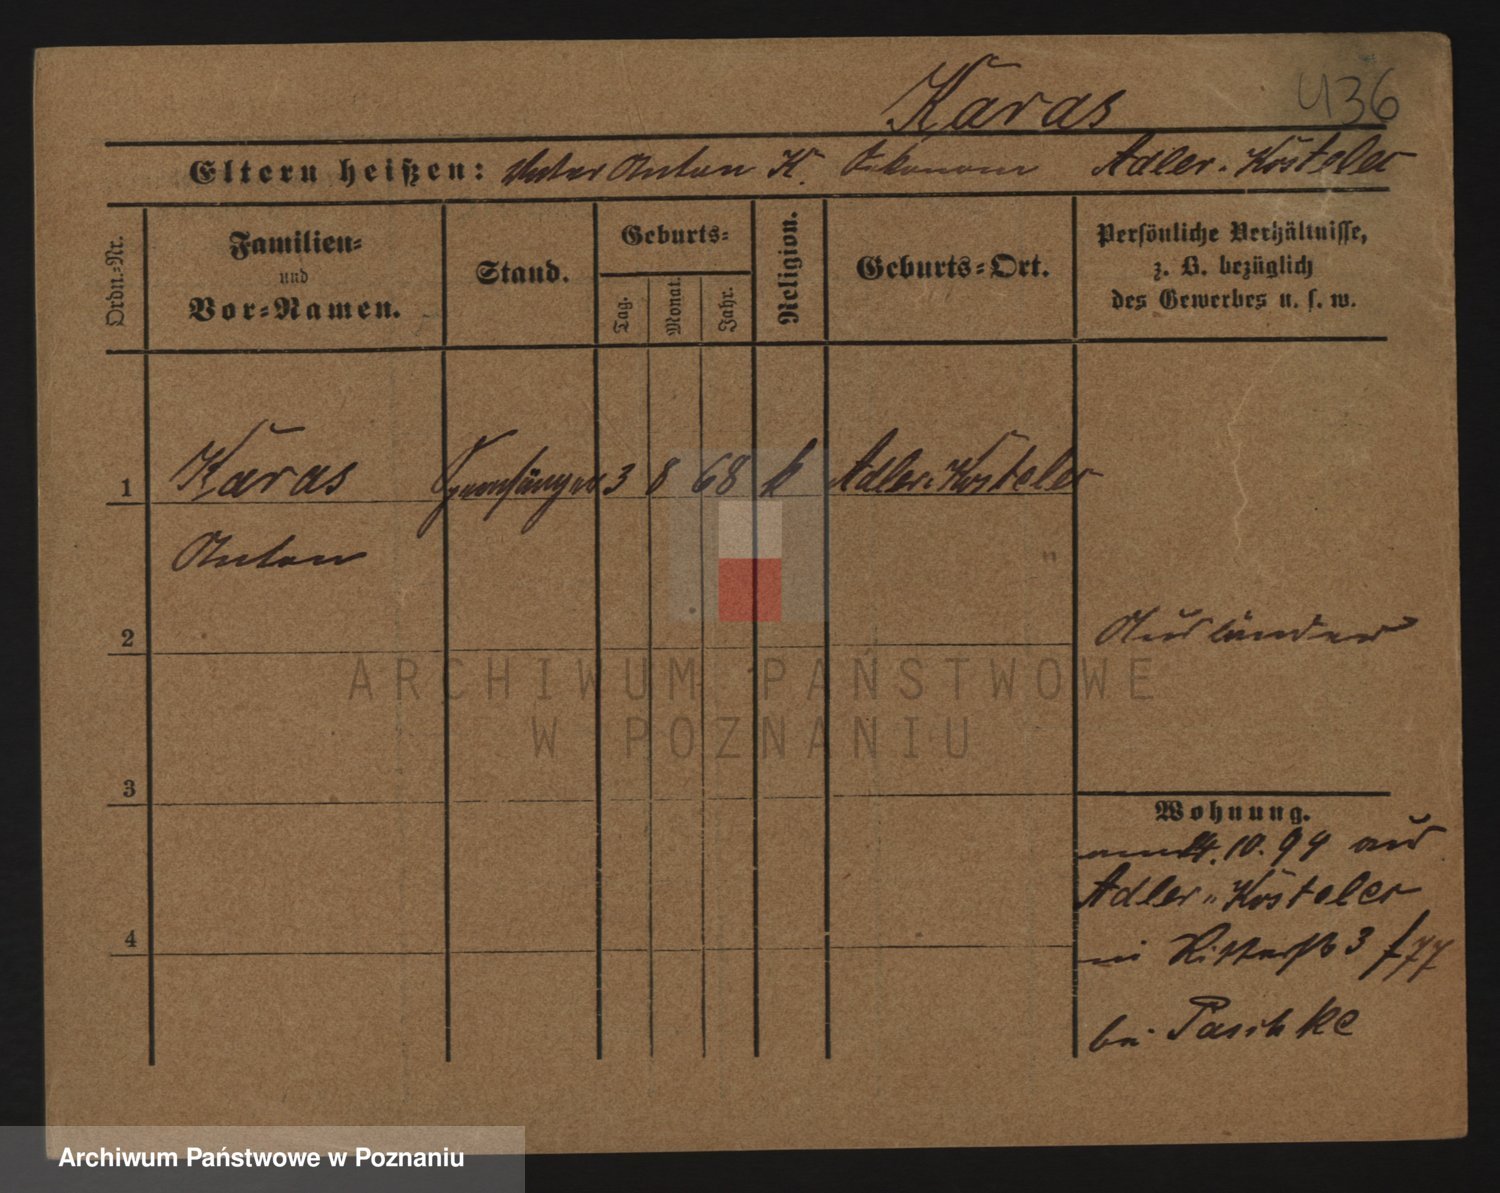 Karas 436
Eltern heißen: Vater Anton K. Oekonom Adler-Kosteler
Ordn.-Nr.
Familien-
und
Vor-Namen.
Stand.
Geburts-
Tag.
Monat.
Jahr.
Religion.
Geburts-Ort.
Persönliche Verhältnisse,
z. B. bezüglich
des Gewerbes u. s. w.
1 Karas Opernsänger 3 8 68 k Adler-Kosteler
Anton
2
Ausländer
3
Wohnung.
10. 94 aus
Adler-Kosteler
4
Ritterstr 3
bei Paschke
ARCHIWUM PAŃSTWOWE
W POZNANIU
Archiwum Państwowe w Poznaniu